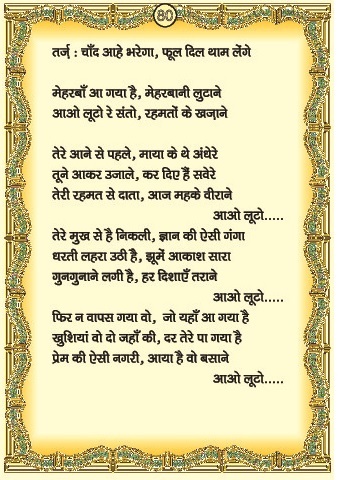 80
तर्ज़ : चाँद आहे भरेगा, फूल दिल थाम लेंगे
मेहरबाँ आ गया है, मेहरबानी लुटाने
आओ लूटो रे संतो, रहमतों के खज़ाने
तेरे आने से पहले, माया के थे अंधेरे
तूने आकर उजाले, कर दिए हैं सवेरे
तेरी रहमत से दाता, आज महके वीराने
आओ लूटो.....
तेरे मुख से है निकली, ज्ञान की ऐसी गंगा
धरती लहरा उठी है, झूमें आकाश सारा
गुनगुनाने लगी है, हर दिशाएँ तराने
आओ लूटो.....
फिर न वापस गया वो, जो यहाँ आ गया है
खुशियां वो दो जहाँ की, दर तेरे पा गया है
प्रेम की ऐसी नगरी, आया है वो बसाने
आओ लूटो.....